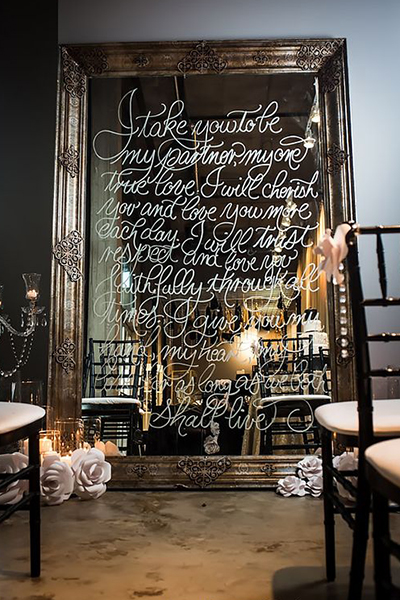 I take you to be
my partner, my one
true love. I will cherish
you and love you more
each day. I will trust
respect and love you
faithfully through all
times. I give you my
hand, my heart, my
for as long as we both
shall live